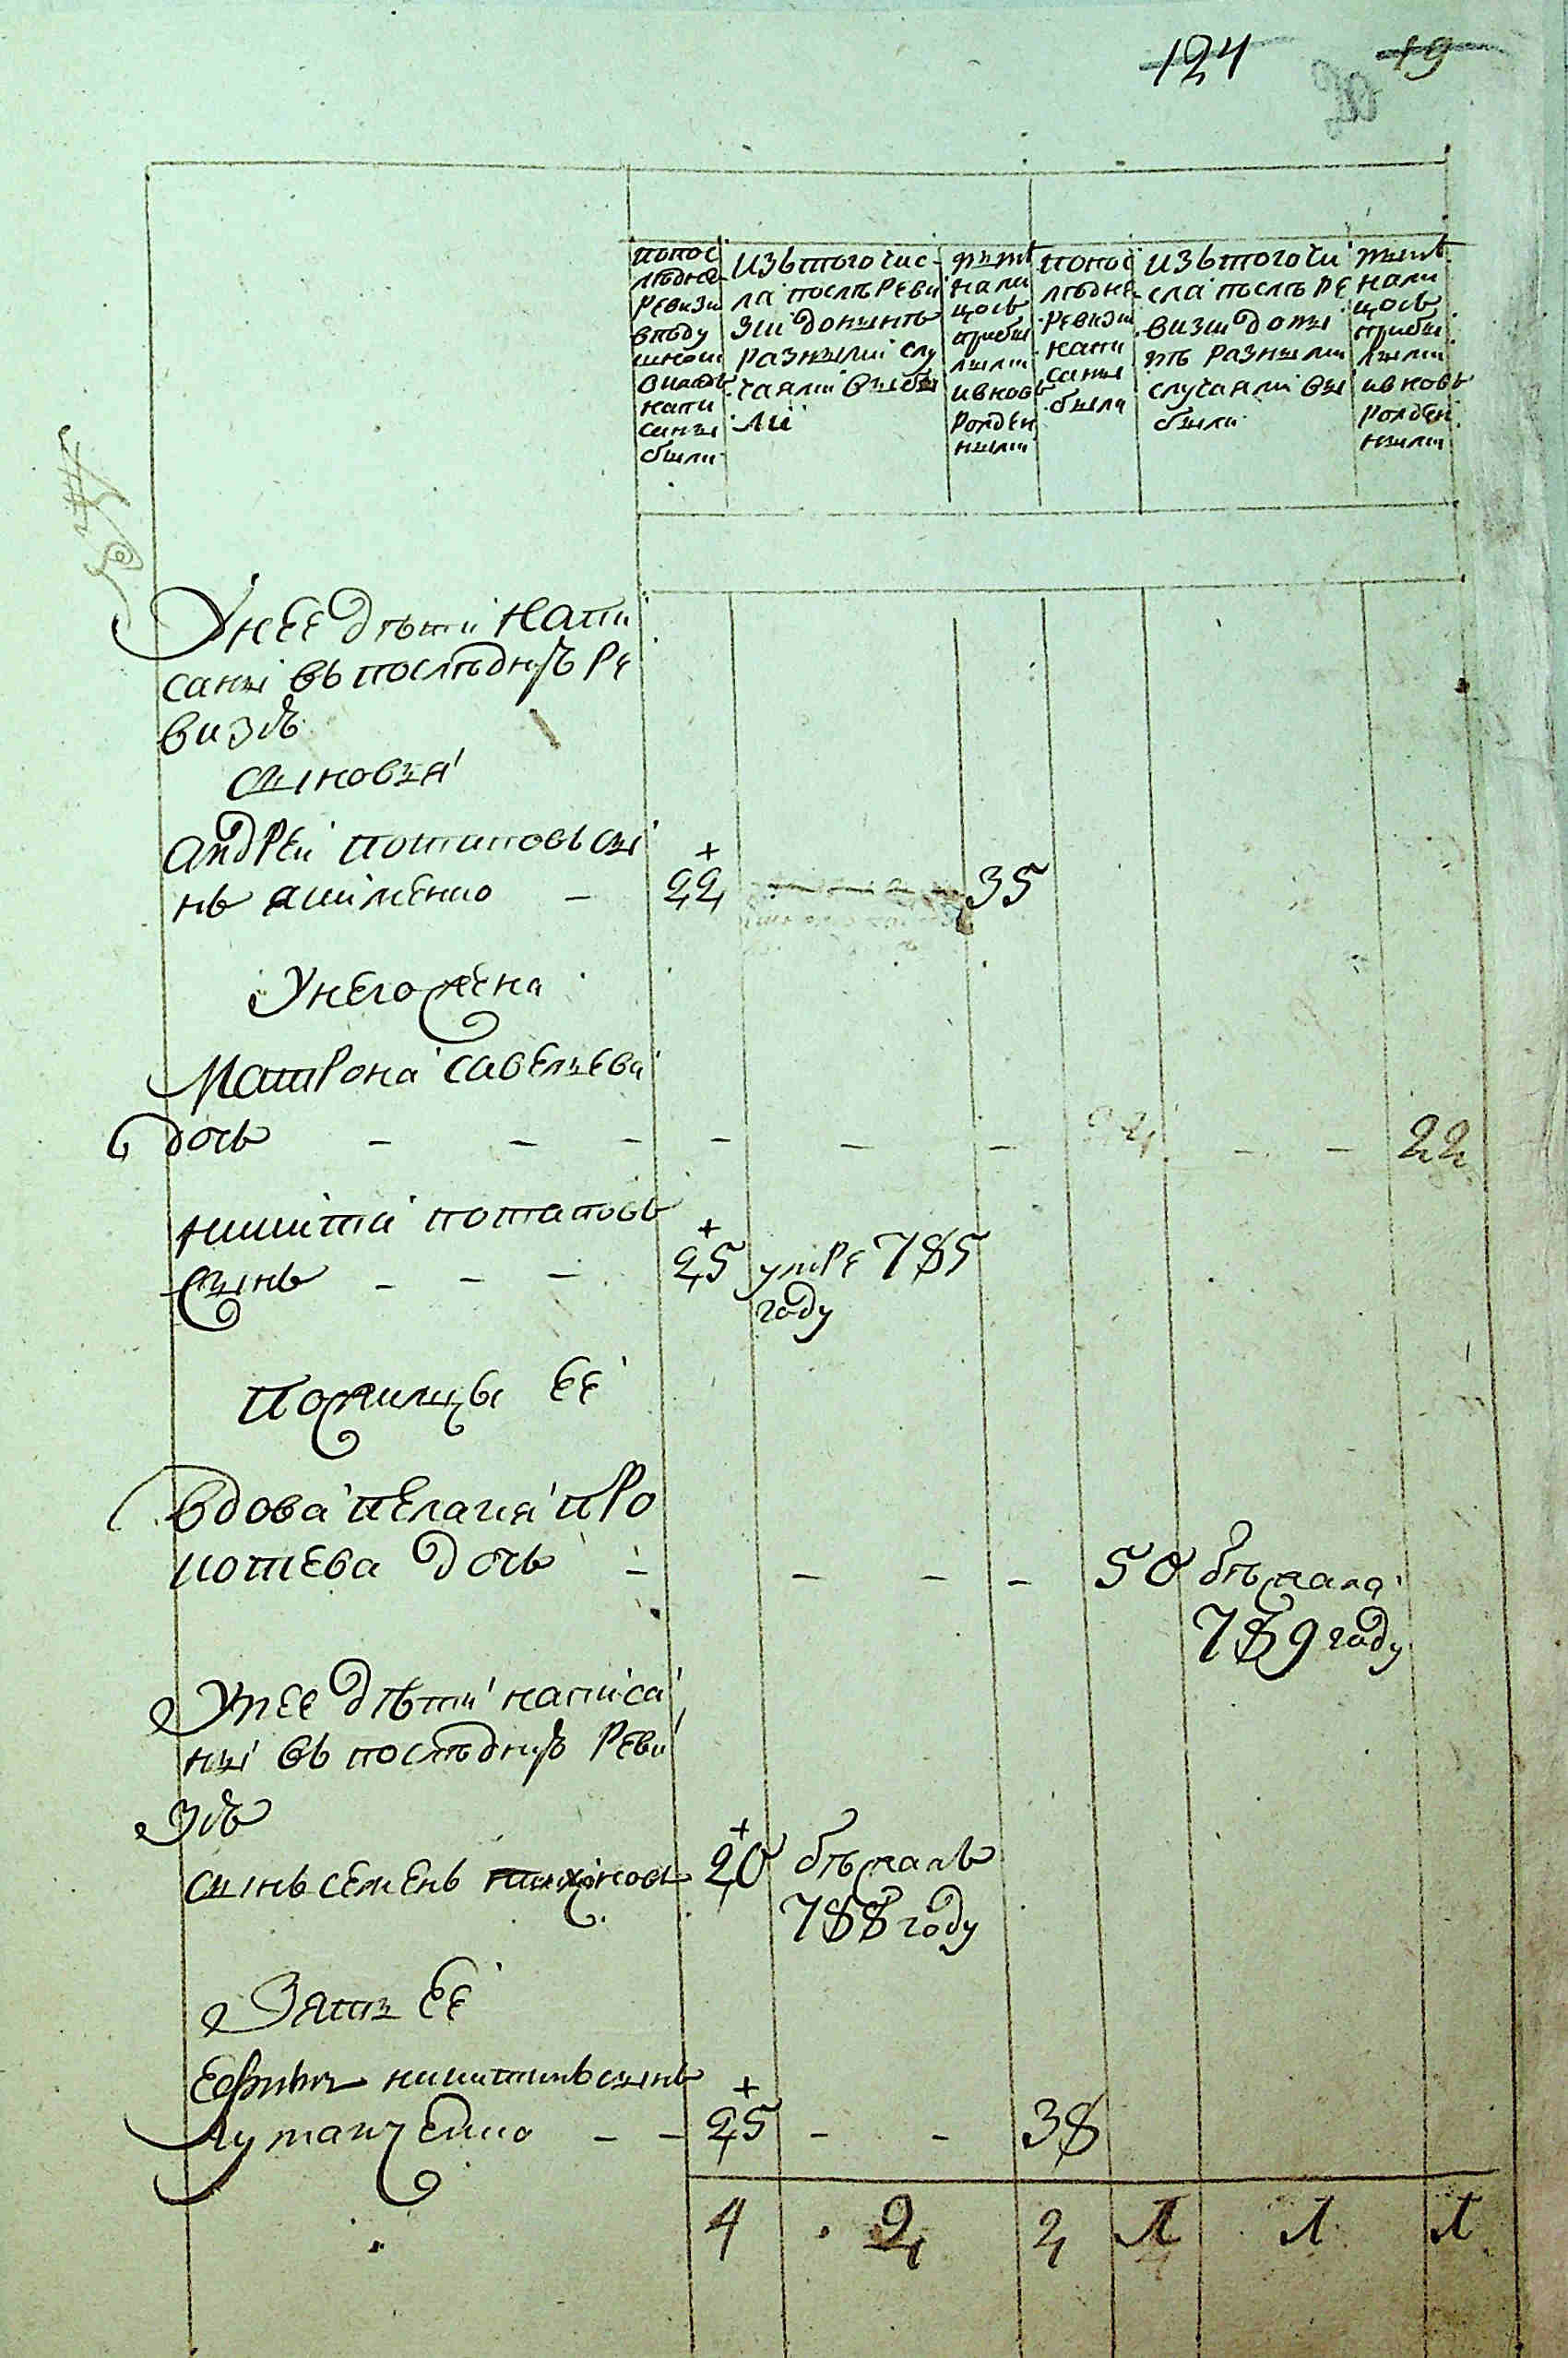 124 19
попос
лѣдне
ревизи
вподу
шном
окладѣ
напи
саны
были
изътого чис
ла послѣ реви
зии донынѣ
разными слу
чаями выбы
ли
нынѣ
нали
цось
прибы
лыми
ивновь
рожден
ными
попос
лѣдне
ревизии
напи
саны
были
изътого чи
сла послѣ ре
визии доны
нѣ разными
случаями вы
были
нынѣ
нали
цось
прибы
лыми
ивновь
рожден
ными
Унее дѣти напи
саны въ последнѣ ре
визѣ
сыновья
андрей потаповъ сы
нъ якименко – 22 35
Унего жена
Матрона савельева
дочь – – – – – – – – 22
никита потаповъ
сынъ – – – 25 умре 785
году
Пожилцы ее
вдова пелагия про
кофьева дочь – – – – 50 бѣжала
789 году
Унее дѣти написа
ны въ последнѣ реви
зѣ
сынъ семенъ тихоновъ 20 бѣжалъ
788 году
Зять ее
Ефимъ никитинъ сынъ
лутанченко – – 25 – – 38
4 2 2 1 1 1